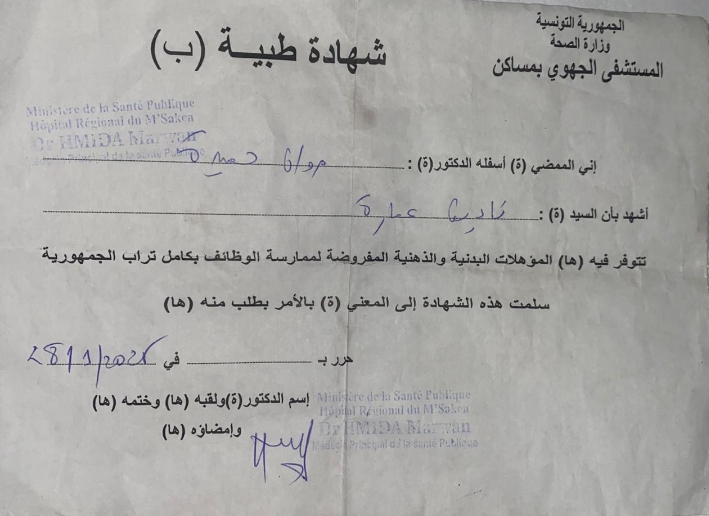 الجمهورية التونسية
وزارة الصحة
المستشفى الجهوي بمساكن
شهادة طبيـــة (ب)
Ministère de la Santé Publique
Hôpital Régional du M'Saken
Dr HMIDA Marwan
Médecin Principal de la santé Publique
إني الممضي (ة) أسفله الدكتور(ة) : مروان حميدة
أشهد بأن السيد (ة) : عمارة
تتوفر فيه (ها) المؤهلات البدنية والذهنية المفروضة لممارسة الوظائف بكامل تراب الجمهورية
سلمت هذه الشهادة إلى المعني (ة) بالأمر بطلب منه (ها)
حرر بـ في
إسم الدكتور(ة)ولقبه (ها) وختمه (ها)
وإمضاؤه (ها)
Ministère de la Santé Publique
Hôpital Régional du M'Saken
Dr HMIDA Marwan
Médecin Principal de la santé Publique